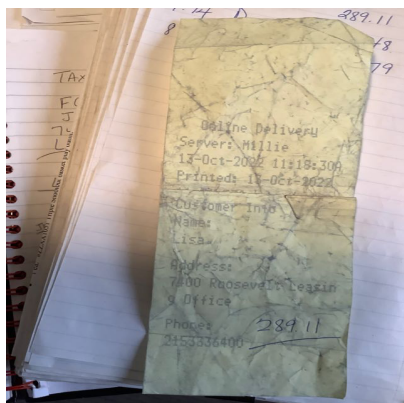 289.11
8
48
79
TAX
Online Delivery
Server: Millie
13-Oct-2022 11:18:30A
Printed: 13-Oct-2022
Customer Info
Name:
Lisa
Address:
7400 Roosevelt Leasin
g Office
Phone: 289.11
2153336400